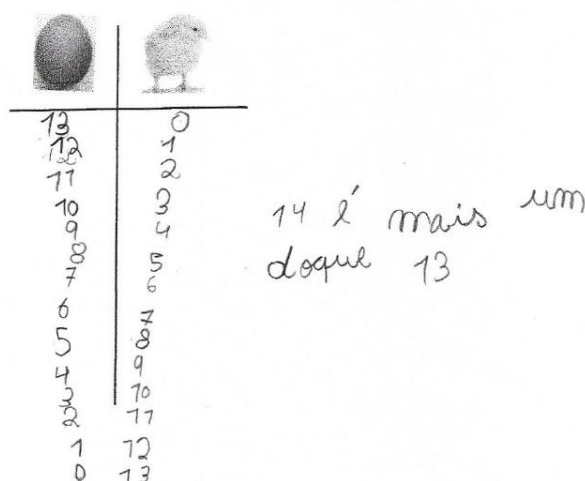 13 0
12 1
11 2
10 3
9 4
8 5
7 6
6 7
5 8
4 9
3 10
2 11
1 12
0 13
14 é mais um
doque 13